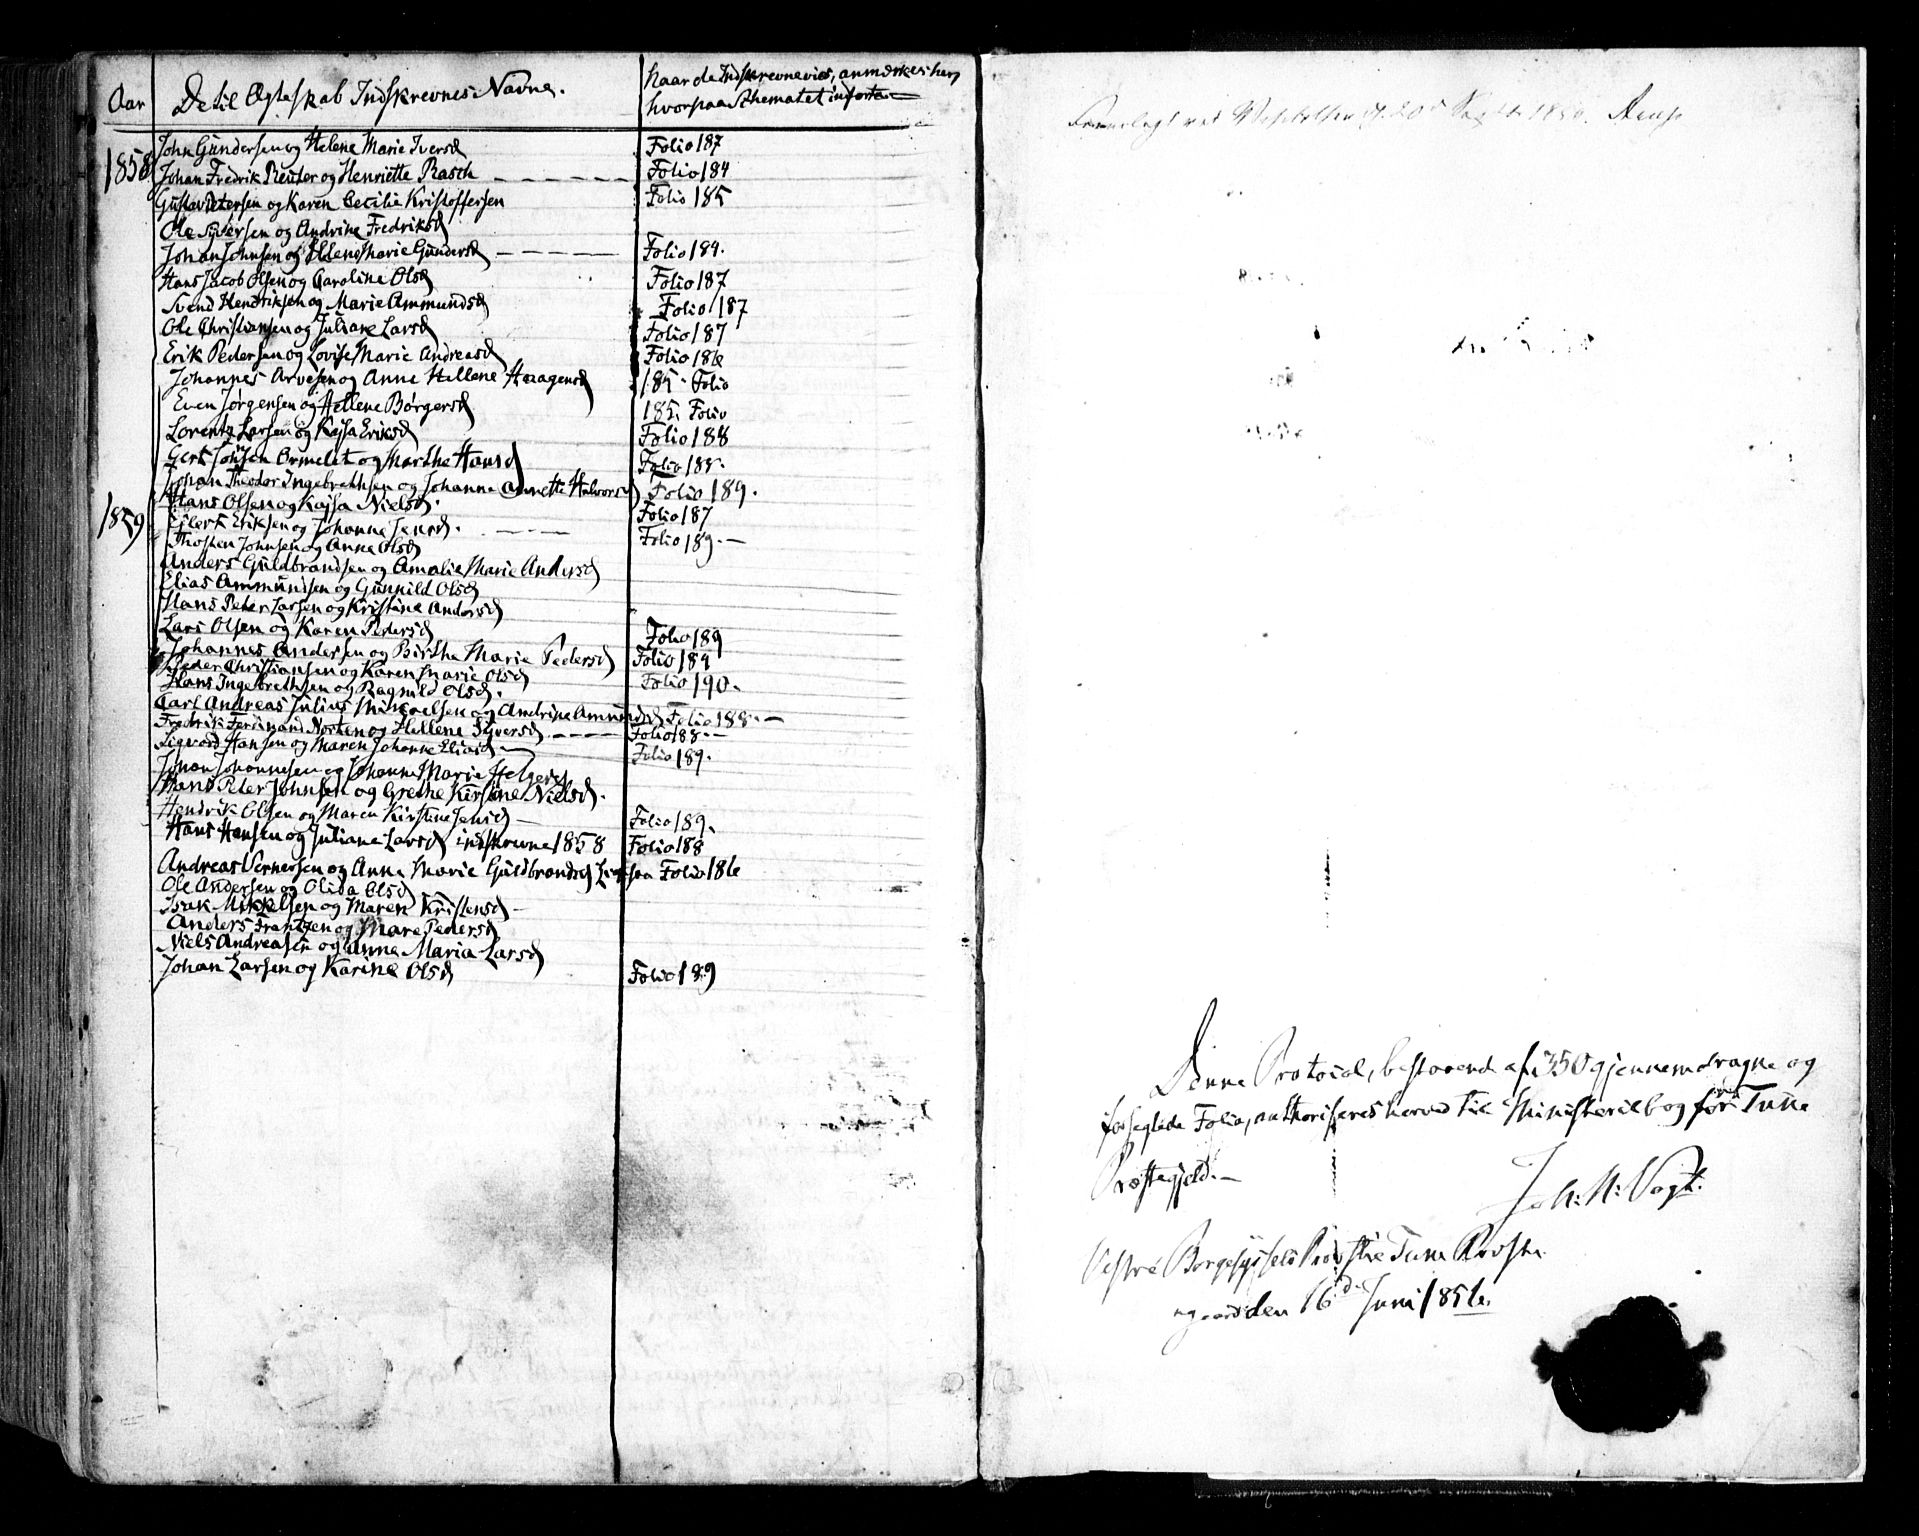 Aar
De til Ægteskab Indskrevnes Navne.
Naar de Indskrevne vies, anmærkes her,
hvorpaa Schematet indførte
1858
John Gundersen og Helene Marie Iversd Folio 187
Johan Fredrik Reuter og Henriette Rasch Folio 184
Gustav Petersen og Karen Cecilie Kristoffersen Folio 185
Ole Syversen og Andrine Fredriksd
Johan Johnsen og Helene Marie Gundersd Folio 184.
Hans Jacob Olsen og Caroline Olsd Folio 187
Svend Hendriksen og Marie Ammundsd Folio 187
Ole Christiansen og Juliane Larsd Folio 187
Erik Pedersen og Lovise Marie Andreasd Folio 186
Johannes Arvesen og Anne Hellene Haagensd 185 Folio
Even Jørgensen og Hellene Børgersd 185. Folio
Lorentz Larsen og Kajsa Eriksd Folio 188
Gert Johsen Ormelet og Marthe Hansd Folio 188.
Johan Theodor Ingebrethsen og Johanne Annette Halvorsd Folio 189.
Hans Olsen og Kajsa Nielsd. Folio 187
1859
Ejlert Eriksen og Johanne Jensd. Folio 189.
Thosten Johnsen og Anne Olsd
Anders Guldbrandsen og Amalie Marie Andersd
Elias Ammundsen og Gunnild Olsd
Hans Peter Larsen og Kristine Andersd
Lars Olsen og Karen Pedersd Folio 189
Johannes Andersen og Birthe Marie Pedersd Folio 189
Peder Christiansen og Karen Marie Olsd Folio 190.
Hans Ingebrethsen og Ragnild Olsd.
Carl Andreas Julius Mikaelsen og Andrine Amundsd Folio 188.
Fredrik Ferdinand Norten og Hellene Syversd Folio 188.
Sigvard Hansen og Maren Johanne Eliasd Folio 189.
Johan Johannesen og Johanne Marie Helgersd
Hans Peter Johnsen og Grethe Kirstine Nielsd.
Hendrik Olsen og Maren Kirstine Jensd Folio 189.
Hans Hansen og Juliane Larsd indskrevne 1858 Folio 188
Andreas Vernersen og Anne Marie Guldbrandsd Folio 186
Ole Andersen og Olida Olsd
Isak Mikkelsen og Maren Kristensd
Anders Frantzen og Mare Pedersd
Niels Andreasen og Anne Maria Larsd
Johan Larsen og Karine Olsd Folio 189
Denne Protocol, bestaaende af 350 gjennemdragne og
forseglede Folio, authoriseres herved til Ministerialbog for Tune
Præstegjeld.
Joh: N: Vogt.
Vestre Borgesyssels Provstie Tune Præste
gaard den 16de Juni 1856.